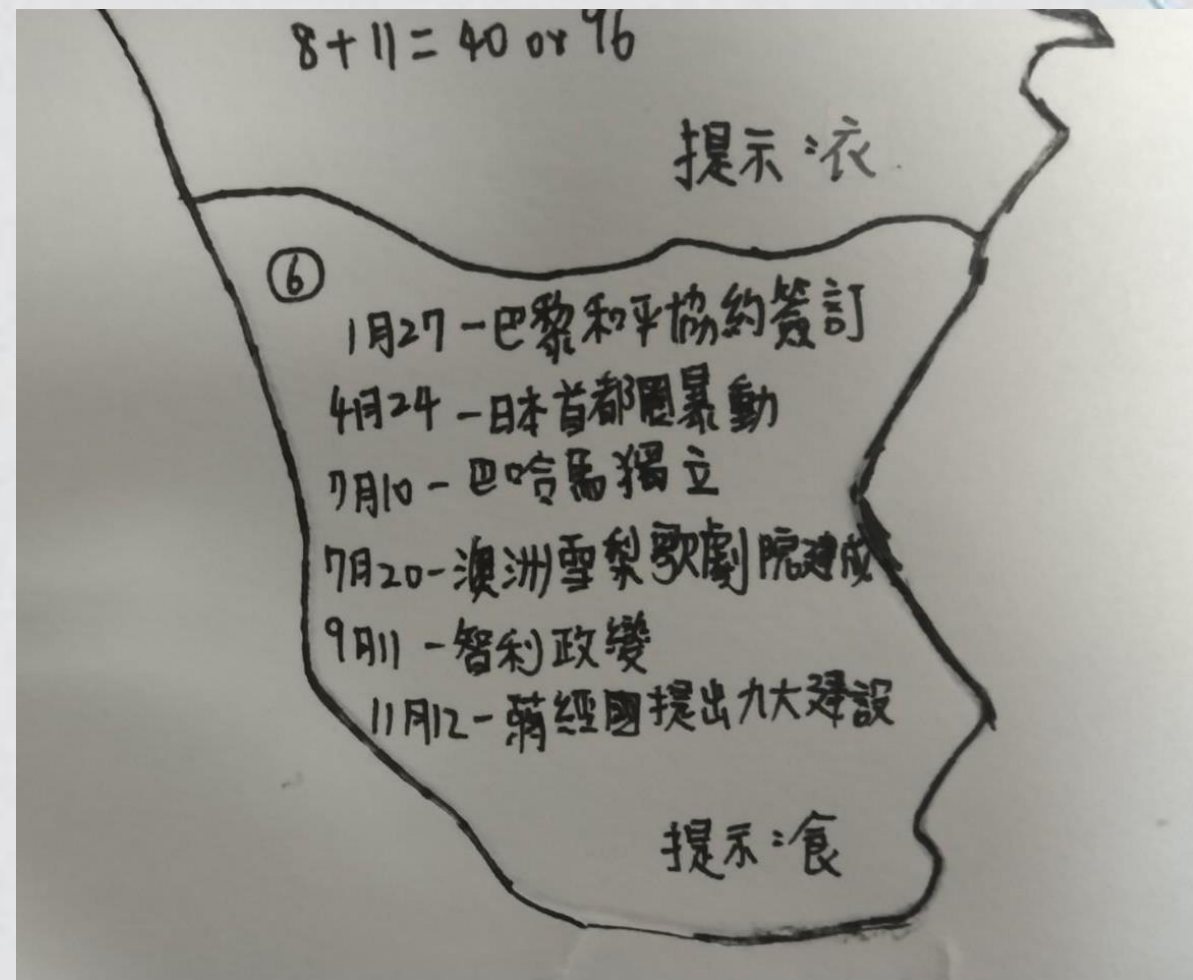 8+11=40 or 96
提示：衣
⑥
1月27-巴黎和平協約簽訂
4月24-日本首都圈暴動
7月10-巴哈馬獨立
7月20-澳洲雪梨歌劇院建成
9月11-智利政變
11月12-蔣經國提出九大建設
提示：食